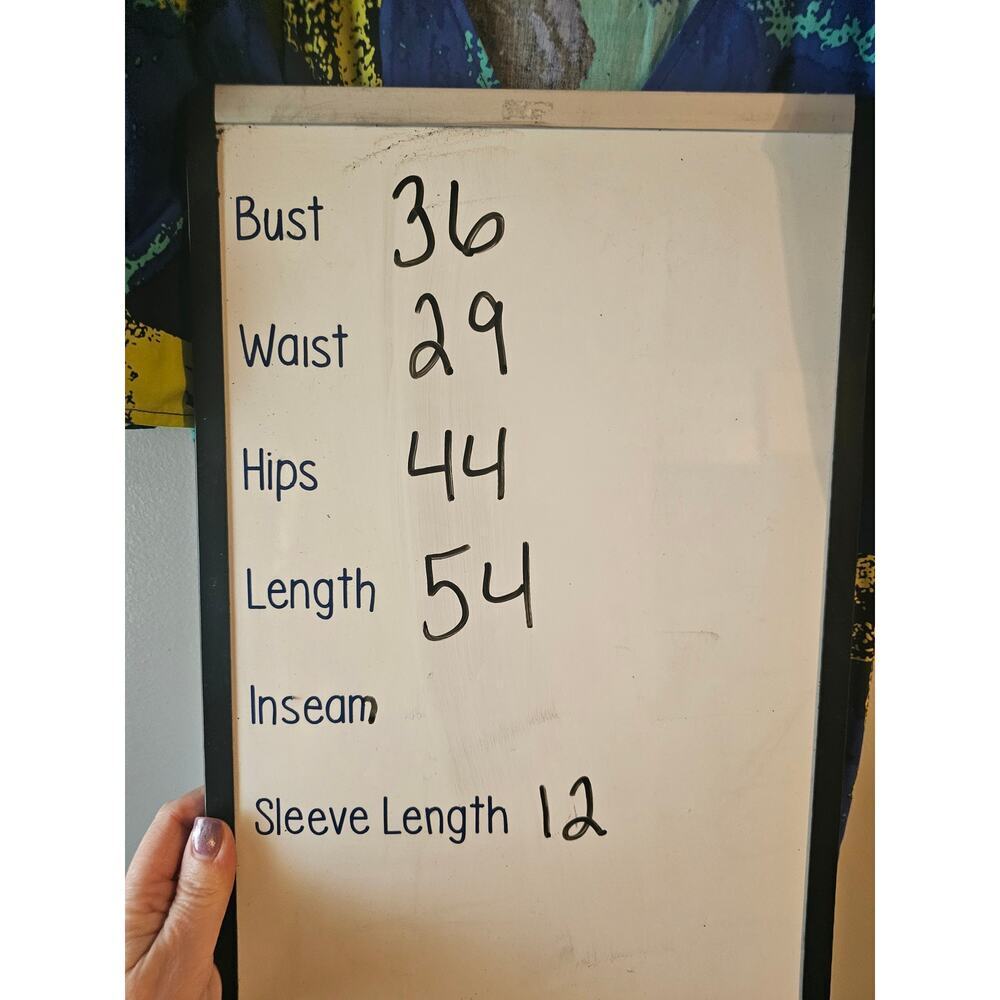 Bust 36
Waist 29
Hips 44
Length 54
Inseam
Sleeve Length 12